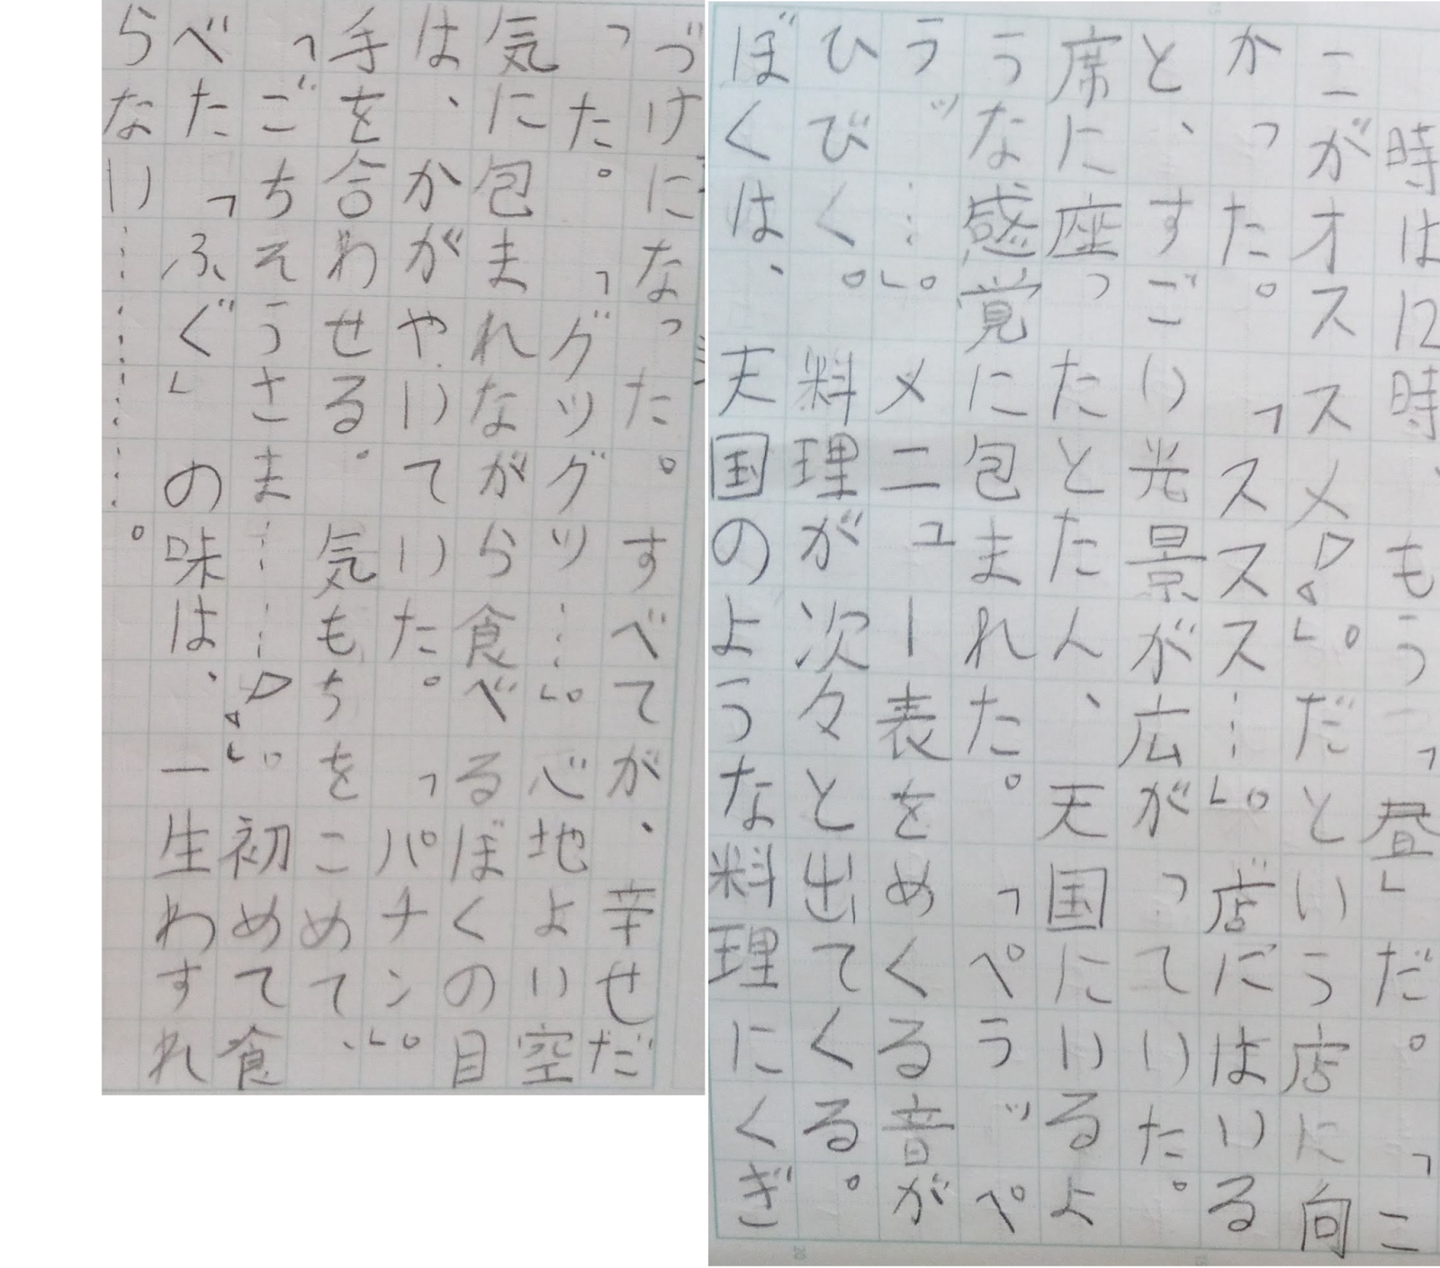 時は12時、もう「昼」だ。「こ
こがオススメ♪。」だという店に向
かった。「ススス…。」店にはいる
と、すごい光景が広がっていた。
席に座ったとたん、天国にいるよ
うな感覚に包まれた。「ペラッペ
ラッ…。」メニュー表をめくる音が
ひびく。料理が次々と出てくる。
ぼくは、天国のような料理にくぎ
づけになった。すべてが、幸せだ
った。「グッグッ…。」心地よい空
気に包まれながら食べるぼくの目
は、かがやいていた。「パチン。」
手を合わせる。気もちをこめて、
「ごちそうさま……♪。」初めて食
べた「ふぐ」の味は、一生わすれ
らない…………。